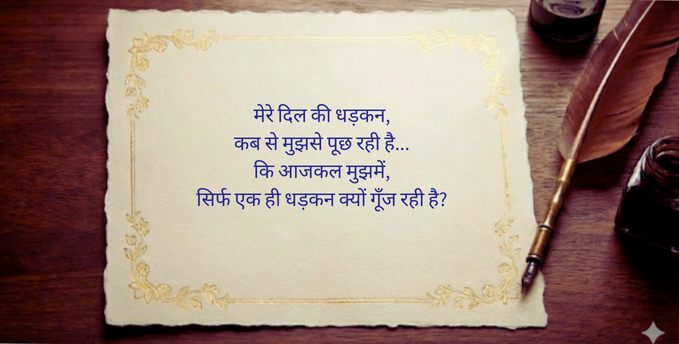 मेरे दिल की धड़कन,
कब से मुझसे पूछ रही है...
कि आजकल मुझमें,
सिर्फ एक ही धड़कन क्यों गूँज रही है?